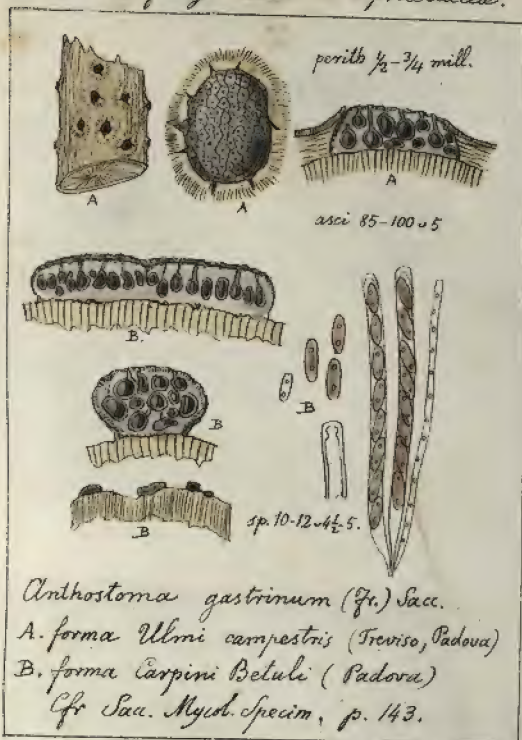 perith ½-¾ mill.
A
A
A
asci 85-100 ᴗ 5
B.
B
B
B
sp. 10-12 ᴗ 4½-5.
Anthostoma gastrinum (Fr.) Sacc.
A. forma Ulmi campestris (Treviso, Padova)
B. forma Carpini Betuli (Padova)
Cfr Sac. Mycol. Specim, p. 143.